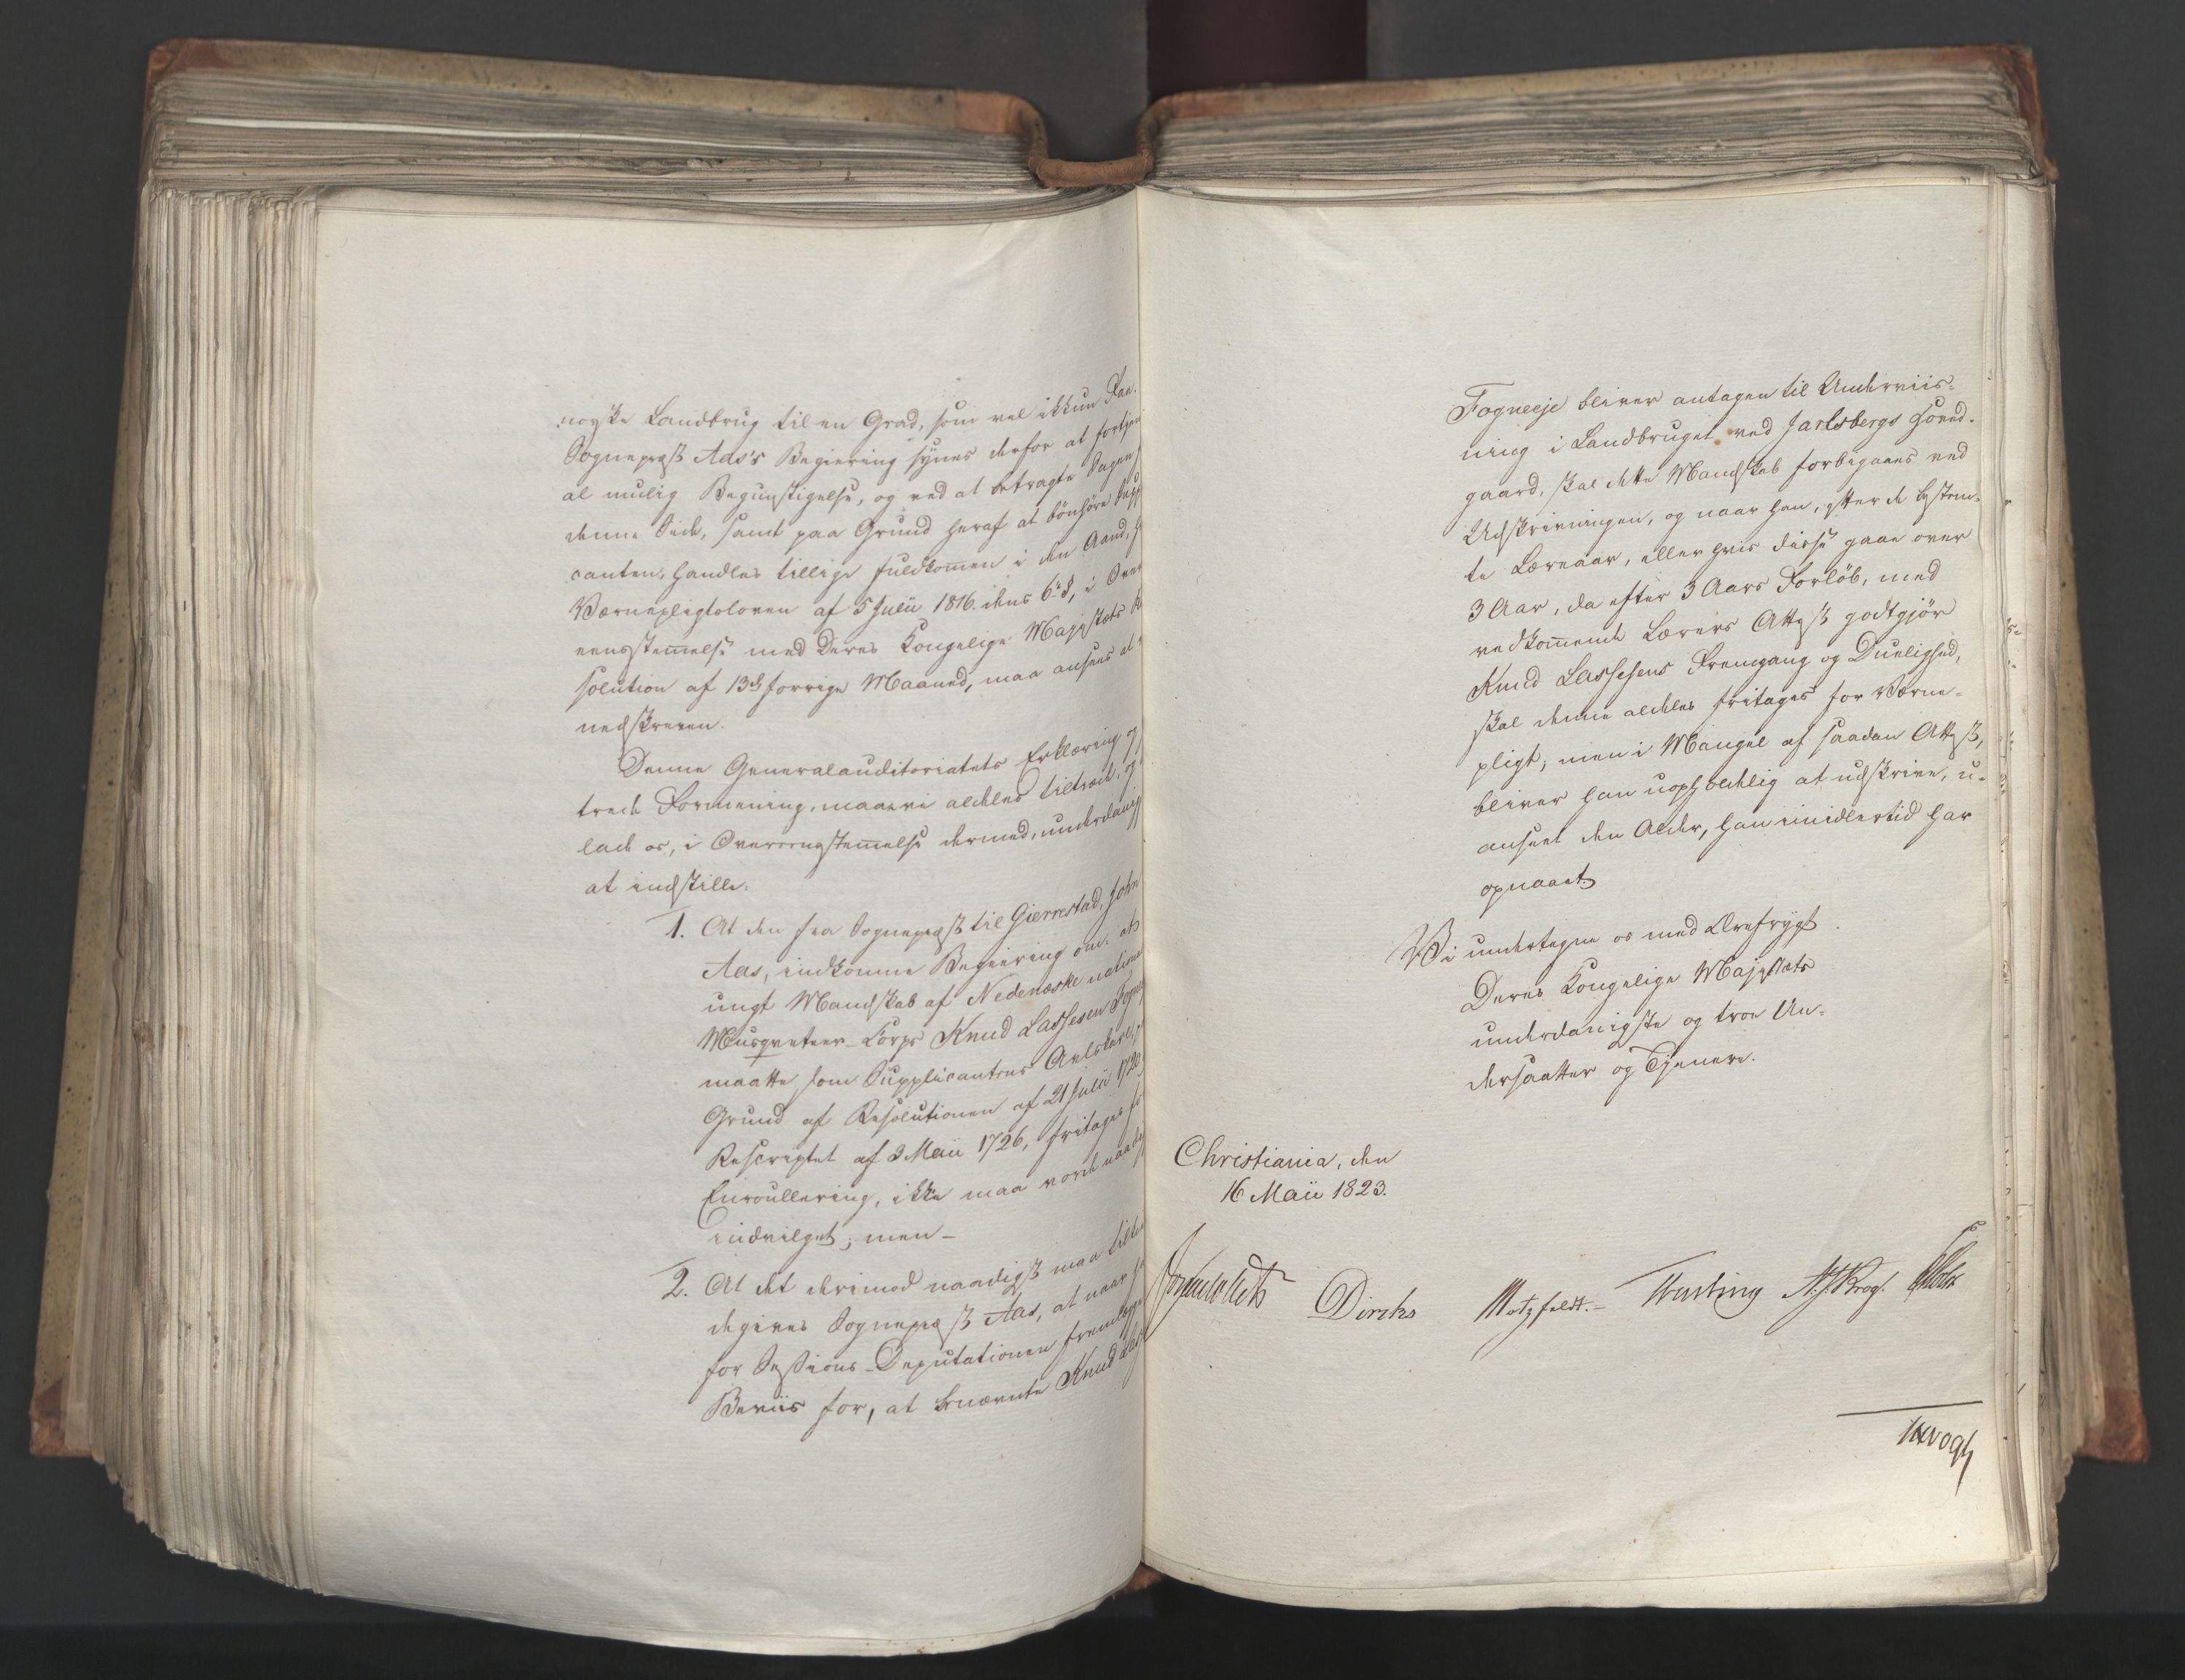 norske Landbrug til en Grad, som vel ikkun Faa.
Sognepræst Aas's Begjering synes derfor at fortjen
al mulig Begunstigelse, og ved at betragte Sagen
denne Side, samt paa Grund heraf at bönhöre Supp
canten, handles tillige fuldkommen i den Aand,
Værnepligtsloven af 5 Julii 1816. dens 6te §, i Over
eensstemmelse med Deres Kongelige Majestæts
solution af 13de forrige Maaned, maa ansees at
nedskreven.
Denne Generalauditoriatets Erklæring og
trede Formening, maae vi aldeles tiltræde, og
lade os, i Overeensstemmelse dermed, underdanig
at indstille:
1. At den fra Sognepræst til Gierrestad, John
Aas, indkomne Begjering om: at
ungt Mandskab af Nedenæske nationa
Musqueteer-Corps Knud Lassesen Fogne
maatte som Supplicantens Avlskarl,
Grund af Resolutionen af 21 Julii 1720
Rescriptet af 3 Maii 1726, fritages fo
Enroullering, ikke maa vorde naadig
indvilget; men-
2. At det derimod naadigst maa tilken
degives Sognepræst Aas, at naar
for Sessions-Deputationen fremlægge
Beviis for, at benævnte Knud Lass
Fogneeje bliver antagen til Underviis-
ning i Landbruget ved Jarlsbergs Hoved-
gaard, skal dette Mandskab forbigaaes ved
Udskrivningen, og naar han, efter de bestem-
te Læreaar, eller hvis disse gaae over
3 Aar, da efter 3 Aars Forløb, med
vedkommende Lærers Attest godtgjör
Knud Lassesens Fremgang og Duelighed,
skal denne aldeles fritages for Værne-
pligt; men i Mangel af saadan Attest,
bliver han uopholdelig at udskrive, u-
anseet den Alder, han imidlertid har
opnaaet.
Vi undertegne os med Ærefrygt
Deres Kongelige Majestæts
underdanigste og troe Un-
dersaatter og Tjenere.
Christiania, den
16 Maii 1823.
Diriks Motzfeldt.- Krog.